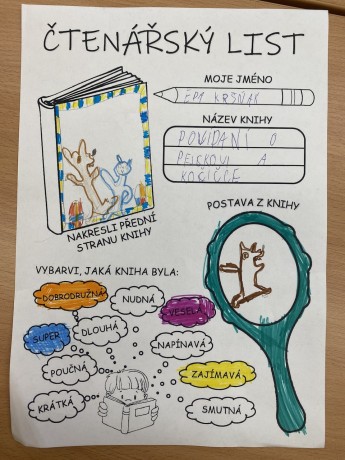 ČTENÁŘSKÝ LIST
MOJE JMÉNO
KRŠŇÁK
NÁZEV KNIHY
POVÍDANÍ O
PEJSKOVI A
KOČIČCE
NAKRESLI PŘEDNÍ
STRANU KNIHY
POSTAVA Z KNIHY
VYBARVI, JAKÁ KNIHA BYLA:
DOBRODRUŽNÁ
NUDNÁ
VESELÁ
SUPER
DLOUHÁ
NAPÍNAVÁ
POUČNÁ
ZAJÍMAVÁ
KRÁTKÁ
SMUTNÁ